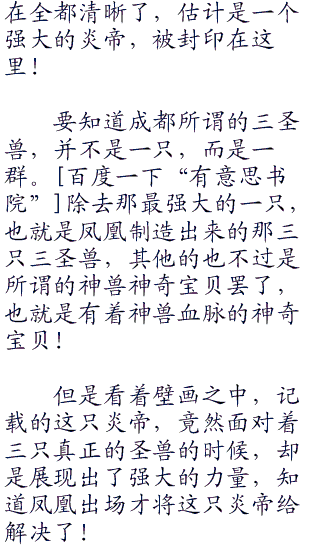 在全都清晰了，估计是一个
强大的炎帝，被封印在这
里！
要知道成都所谓的三圣
兽，并不是一只，而是一
群。[百度一下“有意思书
院”]除去那最强大的一只，
也就是凤凰制造出来的那三
只三圣兽，其他的也不过是
所谓的神兽神奇宝贝罢了，
也就是有着神兽血脉的神奇
宝贝！
但是看着壁画之中，记
载的这只炎帝，竟然面对着
三只真正的圣兽的时候，却
是展现出了强大的力量，知
道凤凰出场才将这只炎帝给
解决了！